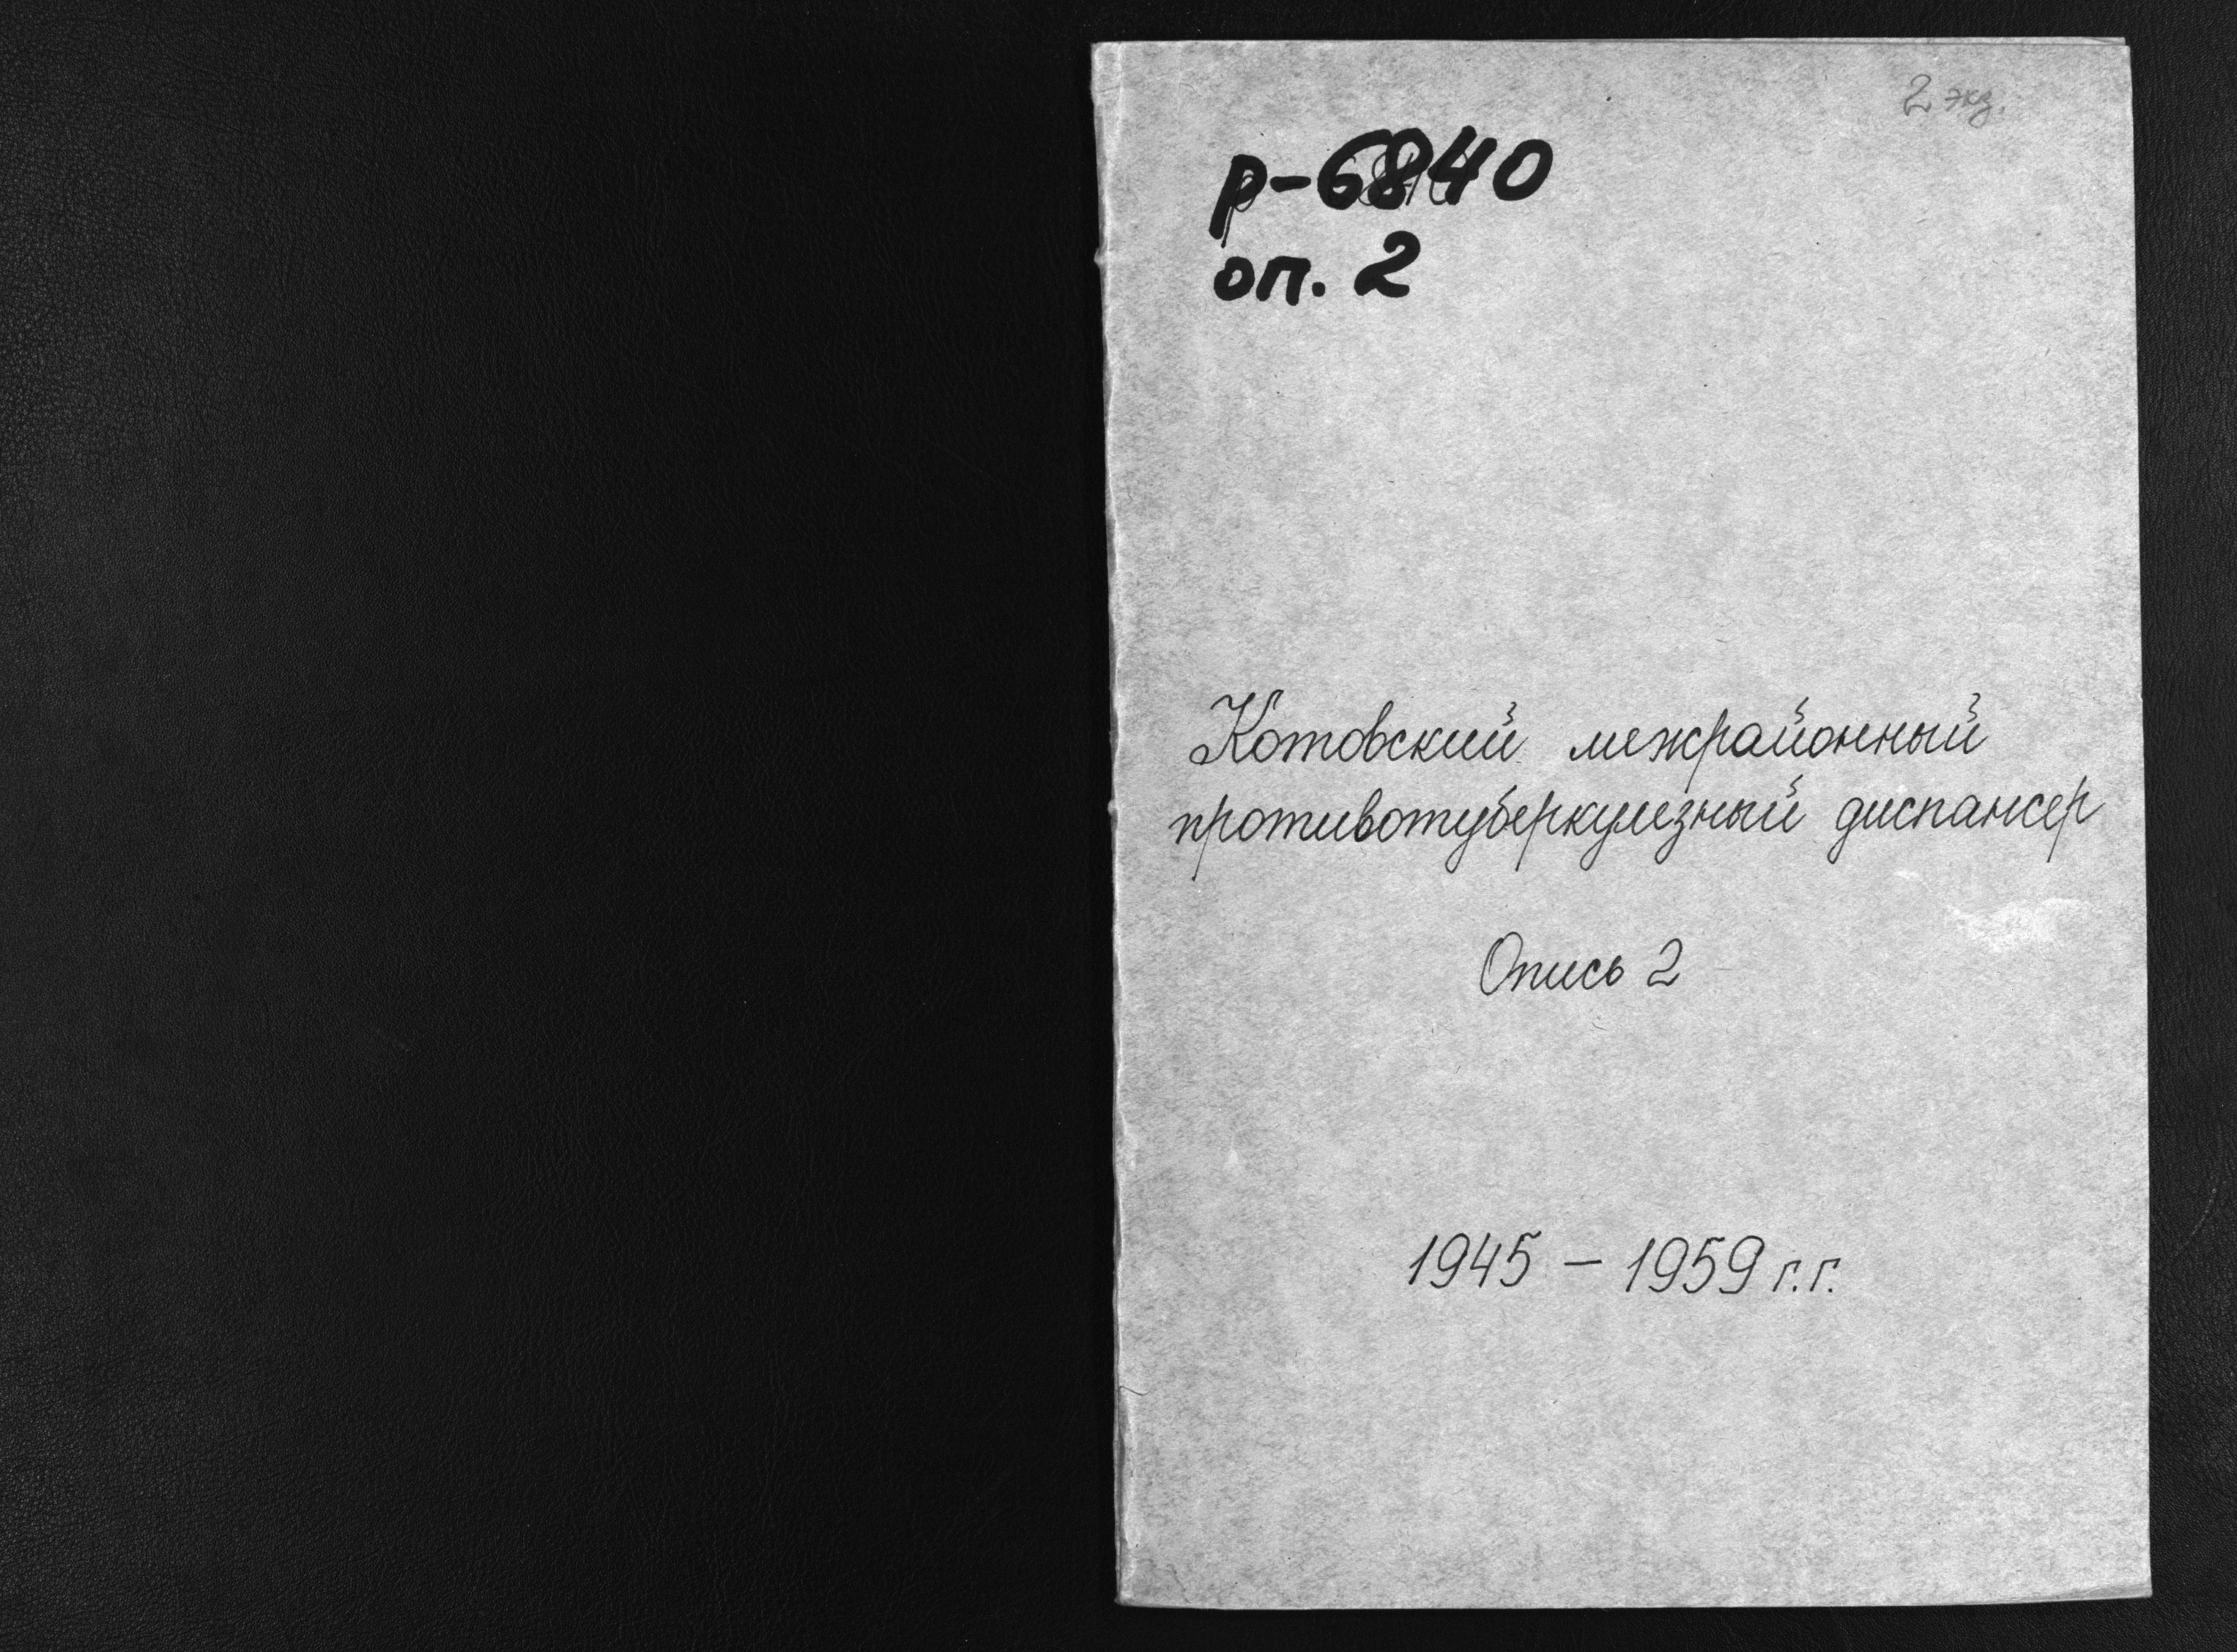 2 экз.
р-6840
оп. 2
Котовский межрайонный
противотуберкулезный диспансер
Опись 2
1945 – 1959 г.г.